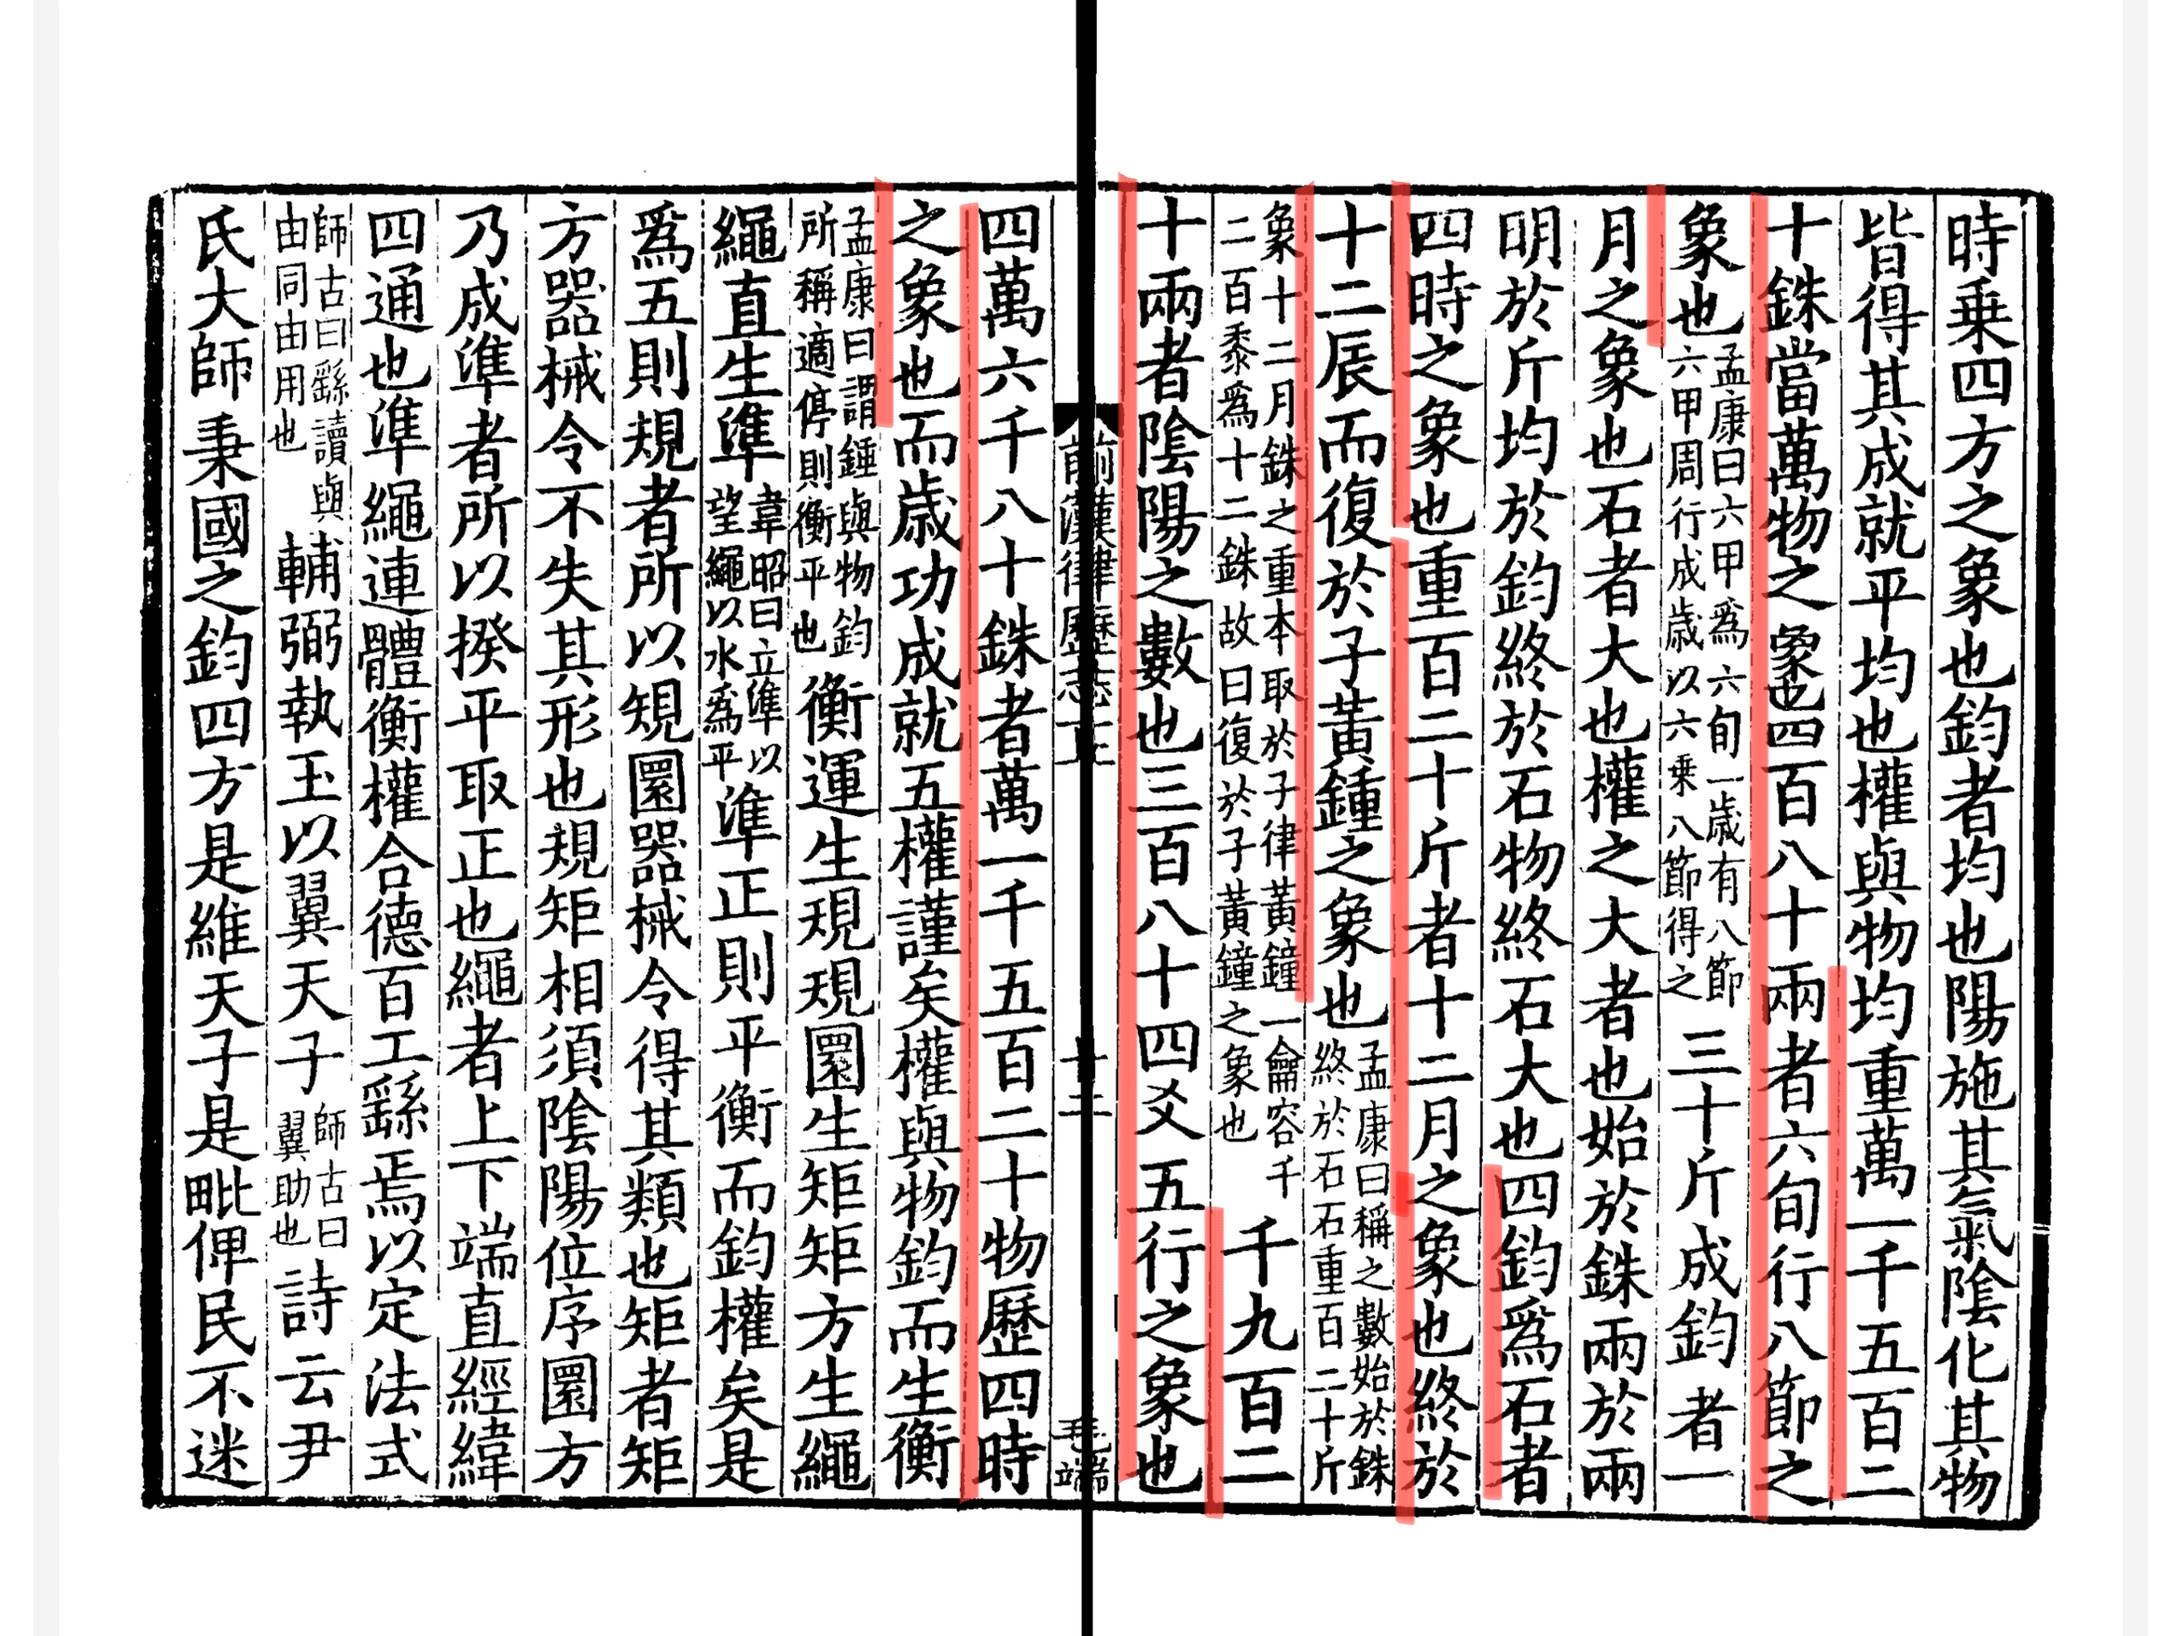 時乗四方之象也鈞者均也陽施其氣陰化其物
皆得其成就平均也權與物均重萬一千五百二
十銖當萬物之象也四百八十兩者六旬行八節之
象也孟康曰六甲爲六旬一歳有八節六甲周行成歳以六乗八節得之三十斤成鈞者一
月之象也石者大也權之大者也始於銖兩於兩
明於斤均於鈞終於石物終石大也四鈞爲石者
四時之象也重百二十斤者十二月之象也終於
十二辰而復於子黃鍾之象也孟康曰稱之數始於銖終於石石重百二十斤
象十二月銖之重本取於子律黃鐘一龠容千二百黍爲十二銖故曰復於子黃鐘之象也千九百二
十兩者陰陽之數也三百八十四爻五行之象也
前漢律歷志上
十二
毛端
四萬六千八十銖者萬一千五百二十物歷四時
之象也而歳功成就五權謹矣權與物鈞而生衡
孟康曰謂錘與物鈞所稱適停則衡平也衡運生規規圜生矩矩方生繩
繩直生準韋昭曰立準以望繩以水爲平準正則平衡而鈞權矣是
爲五則規者所以規圜器械令得其類也矩者矩
方器械令不失其形也規矩相須陰陽位序圜方
乃成準者所以揆平取正也繩者上下端直經緯
四通也準繩連體衡權合德百工繇焉以定法式
師古曰繇讀與由同由用也輔弼執玉以翼天子師古曰翼助也詩云尹
氏大師秉國之鈞四方是維天子是毗俾民不迷